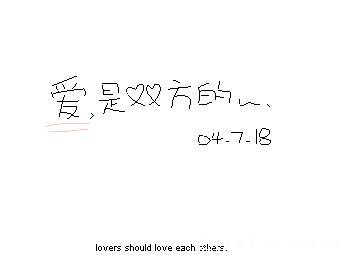 爱,是双方的~.
04-7-18
lovers should love each others.